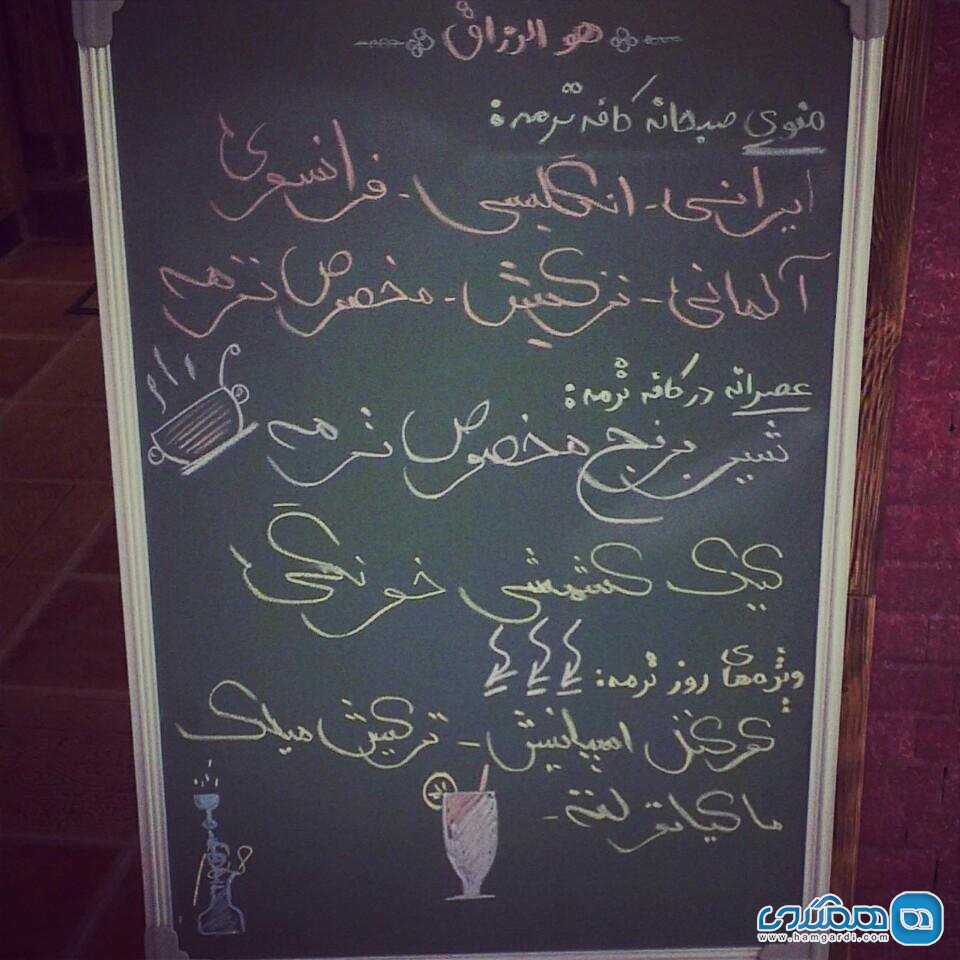 هو الرزاق
منوی صبحانه کافه ترمه:
ایرانی - انگلیسی - فرانسوی
آلمانی - ترکیش - مخصوص ترمه
عصرانه در کافه ترمه:
شیر برنج مخصوص ترمه
کیک کشمشی خونگی
ویژه‌های روز ترمه:
کوکتل اسپانیش - ترکیش میلک
ماکیاتو لفته -
همگردی
www.hamgardi.com